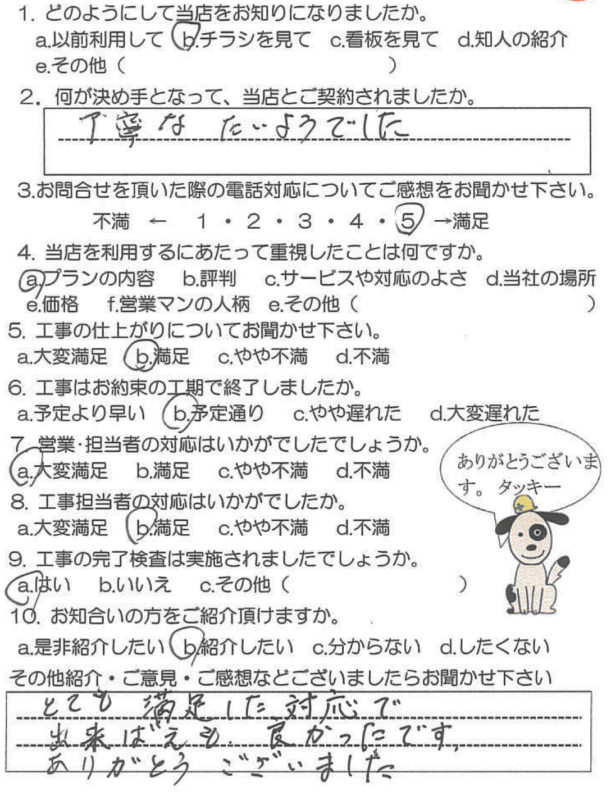 1. どのようにして当店をお知りになりましたか。
a.以前利用して b.チラシを見て c.看板を見て d.知人の紹介
e.その他（ ）
2. 何が決め手となって、当店とご契約されましたか。
丁寧な たいようでした
3.お問合せを頂いた際の電話対応についてご感想をお聞かせ下さい。
不満 ← 1 ・ 2 ・ 3 ・ 4 ・ 5 →満足
4. 当店を利用するにあたって重視したことは何ですか。
a.プランの内容 b.評判 c.サービスや対応のよさ d.当社の場所
e.価格 f.営業マンの人柄 e.その他（ ）
5. 工事の仕上がりについてお聞かせ下さい。
a.大変満足 b.満足 c.やや不満 d.不満
6. 工事はお約束の工期で終了しましたか。
a.予定より早い b.予定通り c.やや遅れた d.大変遅れた
7. 営業・担当者の対応はいかがでしたでしょうか。
a.大変満足 b.満足 c.やや不満 d.不満
ありがとうございま
す。 タッキー
8. 工事担当者の対応はいかがでしたか。
a.大変満足 b.満足 c.やや不満 d.不満
9. 工事の完了検査は実施されましたでしょうか。
a.はい b.いいえ c.その他（ ）
10. お知合いの方をご紹介頂けますか。
a.是非紹介したい b.紹介したい c.分からない d.したくない
その他紹介・ご意見・ご感想などございましたらお聞かせ下さい
とても 満足した対応で
出来ばえも 良かったです。
ありがとう ございました